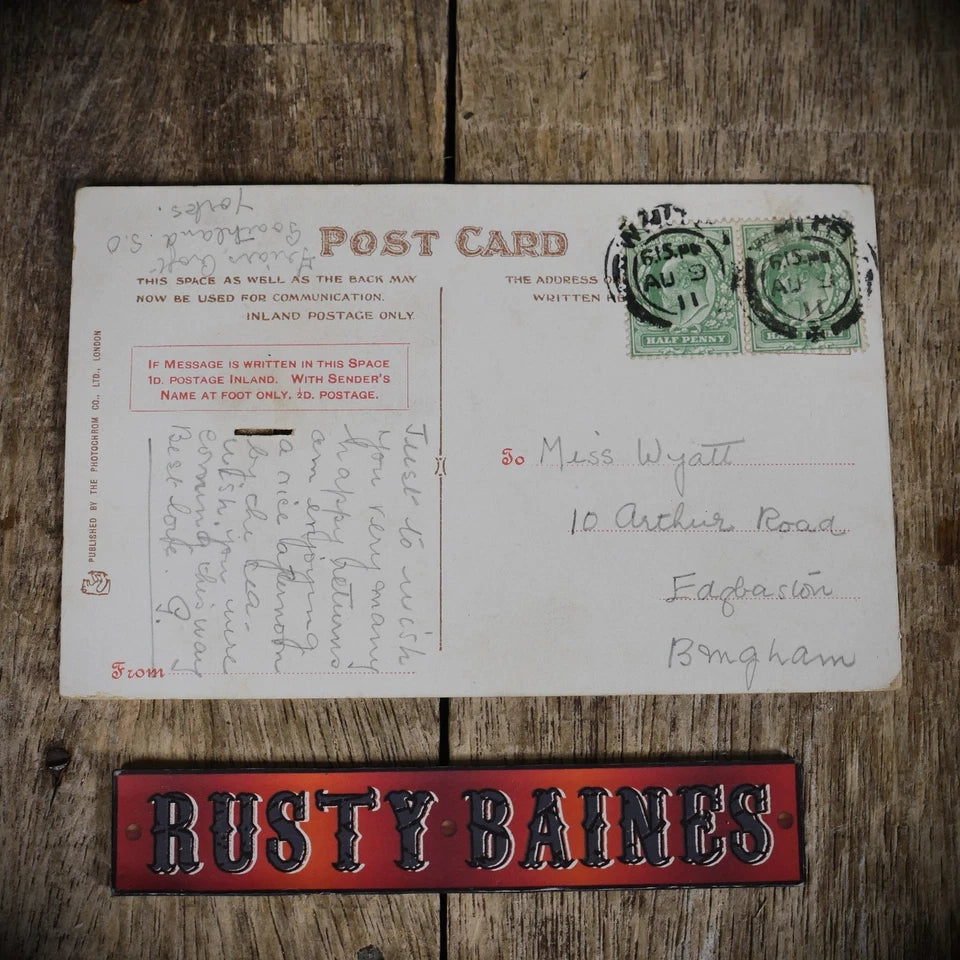 POST CARD
THIS SPACE AS WELL AS THE BACK MAY
NOW BE USED FOR COMMUNICATION.
INLAND POSTAGE ONLY.
THE ADDRESS O
WRITTEN HE
IF MESSAGE IS WRITTEN IN THIS SPACE
1D. POSTAGE INLAND. WITH SENDER'S
NAME AT FOOT ONLY, ½D. POSTAGE.
PUBLISHED BY THE PHOTOCHROM CO., LTD., LONDON
Croft
S.O
Yorks.
Just to wish
you very many
happy returns
am enjoying
a nice afternoon
by the sea -
wish you were
coming this way
Best love. G.
From
6.15.PM
AU 9
11
6.15.PM
AU 9
11
HALF PENNY
HALF PENNY
To Miss Wyatt
10 Arthur Road
Edgbaston
Bmgham
RUSTY BAINES